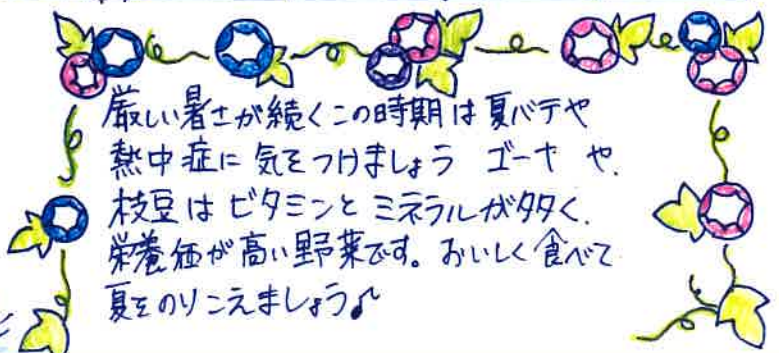 厳しい暑さが続くこの時期は夏バテや
熱中症に気をつけましょう ゴーヤ や、
枝豆は ビタミンと ミネラルが多く、
栄養価が高い野菜です。おいしく食べて
夏をのりこえましょう♪